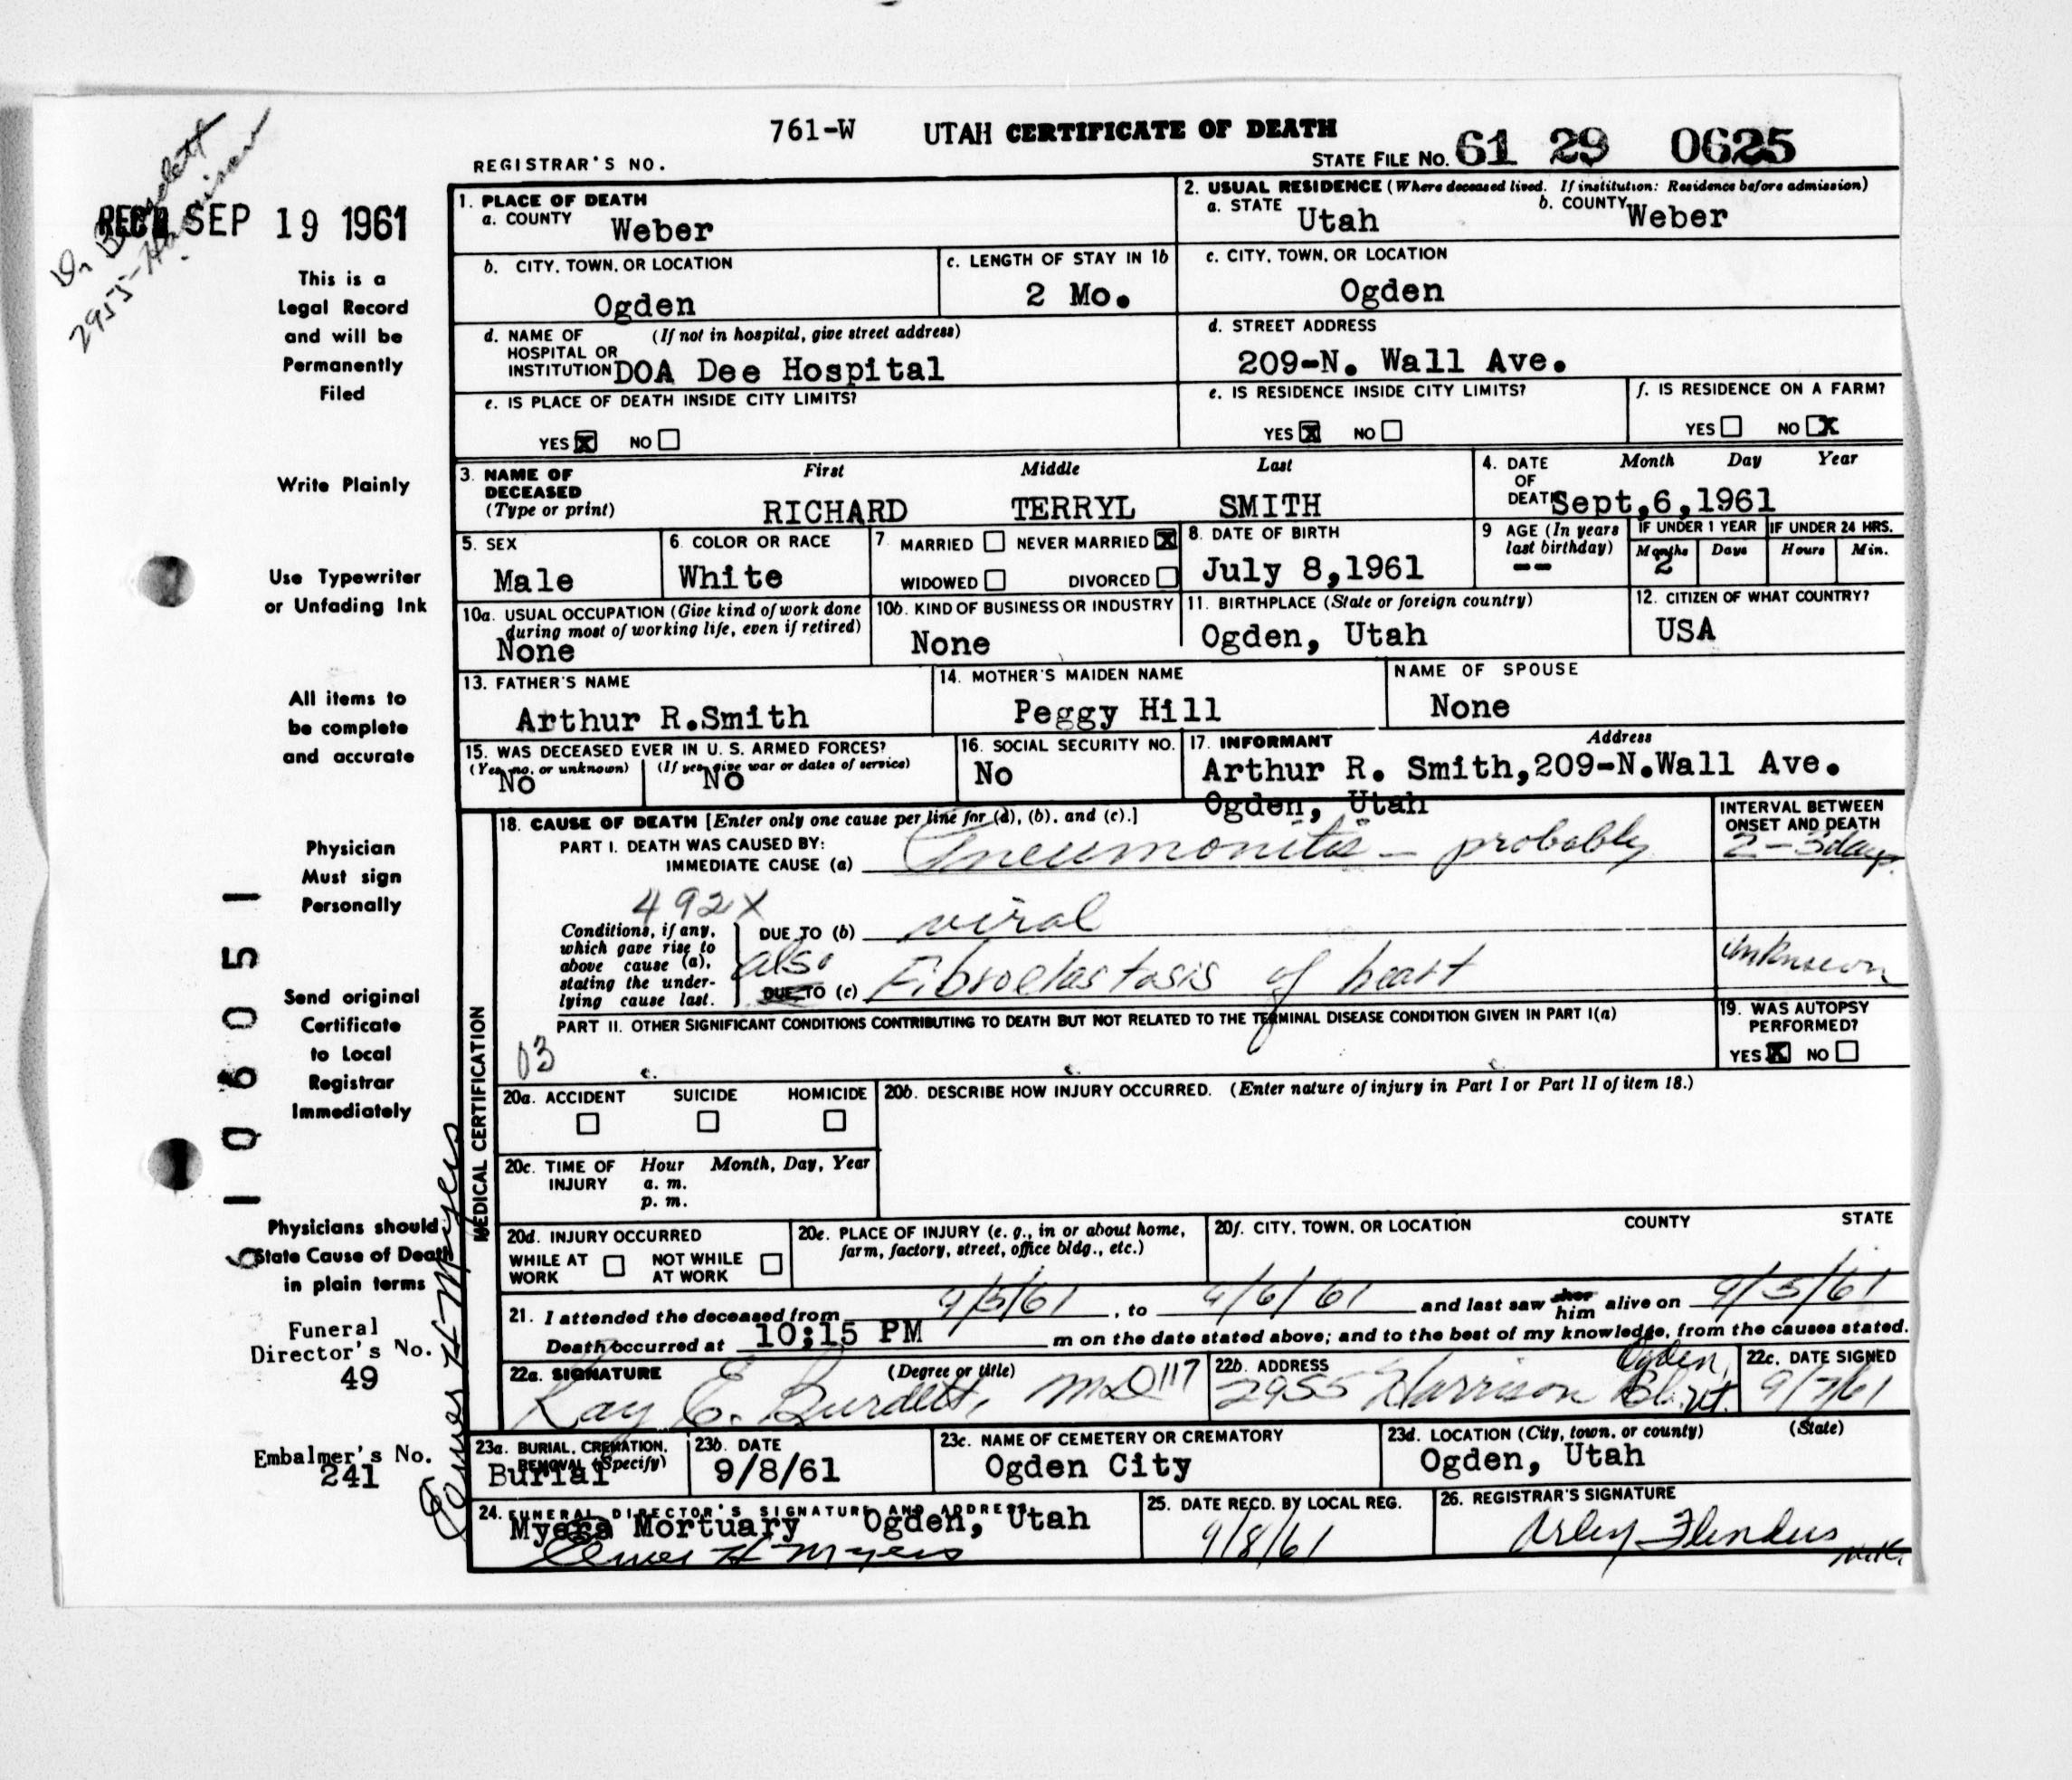 761-W UTAH CERTIFICATE OF DEATH
REGISTRAR'S NO. STATE FILE NO. 61 29 0625
Dr Burdett
2955 Harrison
REC'D SEP 19 1961
This is a
Legal Record
and will be
Permanently
Filed
Write Plainly
Use Typewriter
or Unfading Ink
All items to
be complete
and accurate
Physician
Must sign
Personally
Send original
Certificate
to Local
Registrar
Immediately
Physicians should
State Cause of Death
in plain terms
Funeral
Director's No.
49
Embalmer's No.
241
MEDICAL CERTIFICATION
1. PLACE OF DEATH
a. COUNTY Weber
2. USUAL RESIDENCE (Where deceased lived. If institution: Residence before admission)
a. STATE Utah b. COUNTY Weber
b. CITY, TOWN, OR LOCATION Ogden
c. LENGTH OF STAY IN 1b 2 Mo.
c. CITY, TOWN, OR LOCATION
Ogden
d. NAME OF (If not in hospital, give street address)
HOSPITAL OR
INSTITUTION DOA Dee Hospital
d. STREET ADDRESS
209-N. Wall Ave.
e. IS PLACE OF DEATH INSIDE CITY LIMITS?
YES X NO
e. IS RESIDENCE INSIDE CITY LIMITS?
YES X NO
f. IS RESIDENCE ON A FARM?
YES NO X
3. NAME OF DECEASED (Type or print)
First Middle Last
RICHARD TERRYL SMITH
4. DATE OF DEATH Month Day Year
Sept,6,1961
5. SEX
Male
6. COLOR OR RACE
White
7 MARRIED NEVER MARRIED X
WIDOWED DIVORCED
8. DATE OF BIRTH
July 8,1961
9 AGE (In years last birthday)
--
IF UNDER 1 YEAR IF UNDER 24 HRS.
Months Days Hours Min.
2
10a. USUAL OCCUPATION (Give kind of work done
during most of working life, even if retired)
None
10b. KIND OF BUSINESS OR INDUSTRY
None
11. BIRTHPLACE (State or foreign country)
Ogden, Utah
12. CITIZEN OF WHAT COUNTRY?
USA
13. FATHER'S NAME
Arthur R.Smith
14. MOTHER'S MAIDEN NAME
Peggy Hill
NAME OF SPOUSE
None
15. WAS DECEASED EVER IN U. S. ARMED FORCES?
(Yes, no, or unknown) (If yes, give war or dates of service)
No No
16. SOCIAL SECURITY NO.
No
17. INFORMANT Address
Arthur R. Smith,209-N.Wall Ave.
Ogden, Utah
18. CAUSE OF DEATH [Enter only one cause per line for (a), (b), and (c).]
INTERVAL BETWEEN
ONSET AND DEATH
PART I. DEATH WAS CAUSED BY:
IMMEDIATE CAUSE (a) Pneumonitis - probably 2-3 days
492X
Conditions, if any,
which gave rise to
above cause (a),
stating the under-
lying cause last.
DUE TO (b) viral
also
DUE TO (c) Fibroelastosis of heart unknown
PART II. OTHER SIGNIFICANT CONDITIONS CONTRIBUTING TO DEATH BUT NOT RELATED TO THE TERMINAL DISEASE CONDITION GIVEN IN PART I(a)
03
19. WAS AUTOPSY
PERFORMED?
YES X NO
20a. ACCIDENT SUICIDE HOMICIDE
20b. DESCRIBE HOW INJURY OCCURRED. (Enter nature of injury in Part I or Part II of item 18.)
20c. TIME OF INJURY Hour Month, Day, Year
a. m.
p. m.
20d. INJURY OCCURRED
WHILE AT WORK NOT WHILE AT WORK
20e. PLACE OF INJURY (e. g., in or about home,
farm, factory, street, office bldg., etc.)
20f. CITY, TOWN, OR LOCATION COUNTY STATE
21. I attended the deceased from 9/5/61, to 9/6/61 and last saw her him alive on 9/5/61
Death occurred at 10:15 PM m on the date stated above; and to the best of my knowledge, from the causes stated.
22a. SIGNATURE (Degree or title)
Ray E. Burdett, MD 117
22b. ADDRESS
2955 Harrison Bl. Ogden, Ut.
22c. DATE SIGNED
9/7/61
23a. BURIAL, CREMATION,
REMOVAL (Specify)
Burial
23b. DATE
9/8/61
23c. NAME OF CEMETERY OR CREMATORY
Ogden City
23d. LOCATION (City, town, or county) (State)
Ogden, Utah
24. FUNERAL DIRECTOR'S SIGNATURE AND ADDRESS
Myers Mortuary Ogden, Utah
Elmer H Myers
25. DATE RECD. BY LOCAL REG.
9/8/61
26. REGISTRAR'S SIGNATURE
Arley Flinders
Elmer H Myers